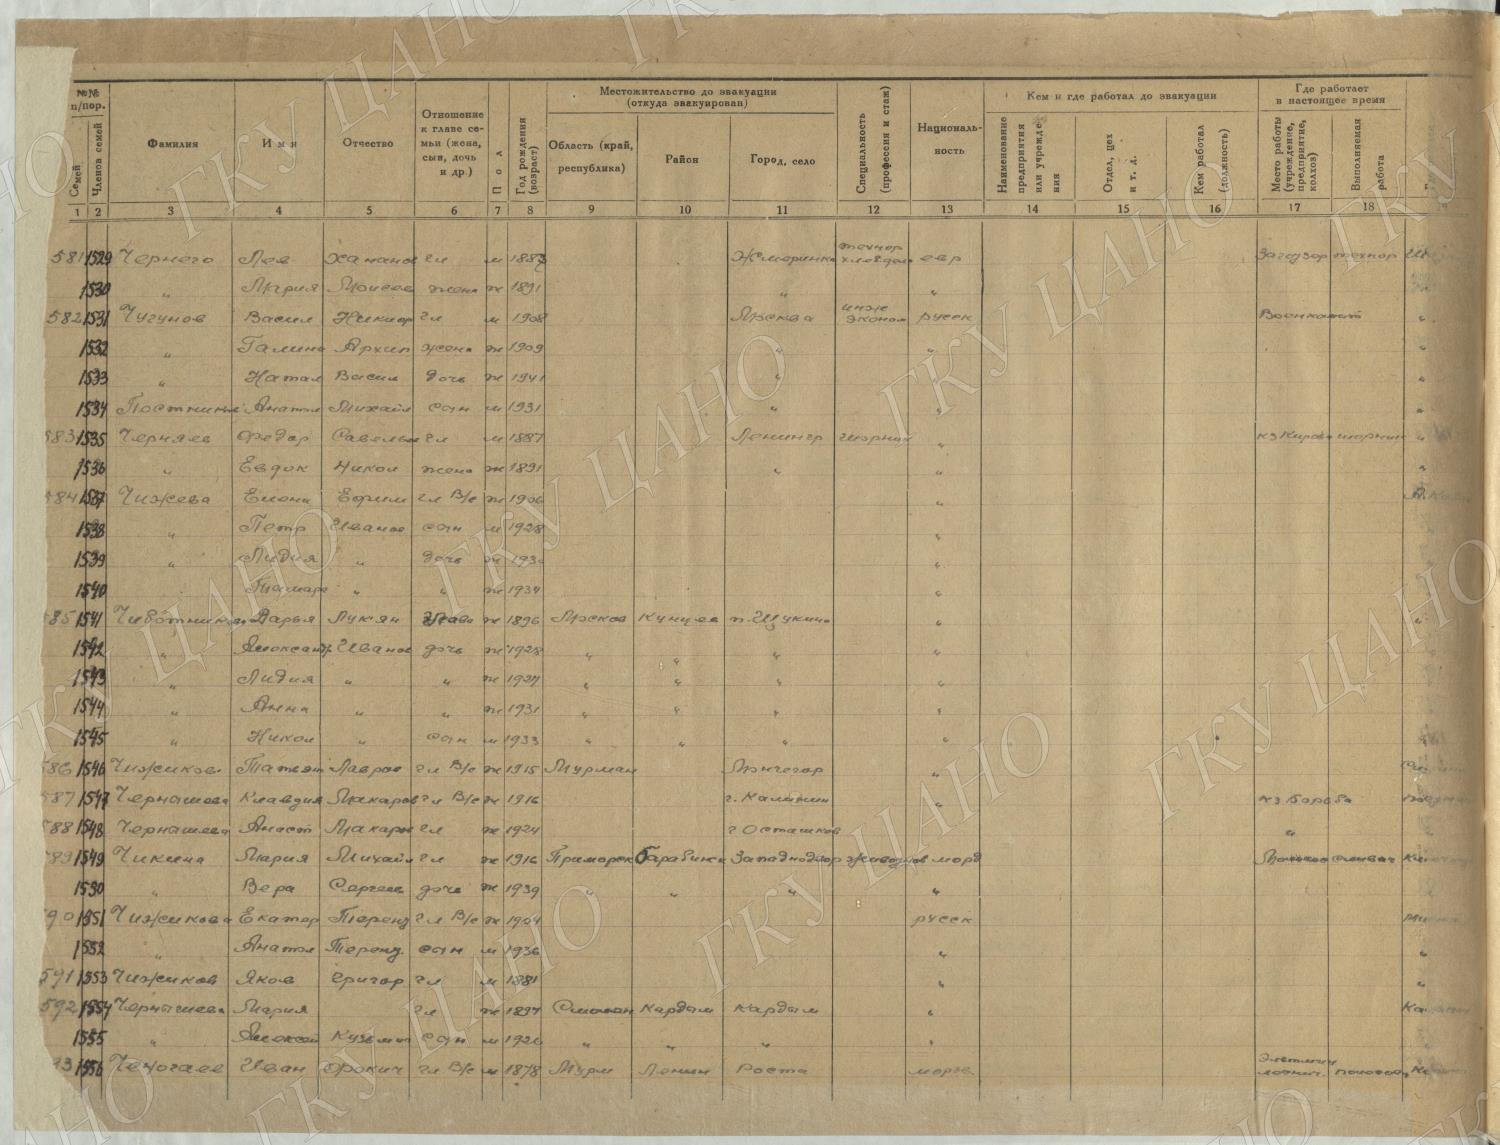 №№ п/пор.
Семей
Членов семей
Фамилия
Имя
Отчество
Отношение к главе семьи (жена, сын, дочь и др.)
Пол
Год рождения (возраст)
Местожительство до эвакуации (откуда эвакуирован)
Область (край, республика)
Район
Город, село
Специальность (профессия и стаж)
Национальность
Кем и где работал до эвакуации
Наименование предприятия или учреждения
Отдел, цех и т. д.
Кем работал (должность)
Где работает в настоящее время
Место работы (учреждение, предприятие, колхоз)
Выполняемая работа
1 2 3 4 5 6 7 8 9 10 11 12 13 14 15 16 17 18
581 1529 Чернего Лев гл м Жмеринка евр Заготзер
1530 " Мария Моисев жена ж 1891 " "
582 1531 Чугунов Васил Никиор гл м 1908 Москва инж эконом русск Военкомат "
1532 " Галина Архип жена ж 1909 " " "
1533 " Натал Васил дочь ж 1941 " " "
1534 Анатол Михайл сын м 1931 " " "
583 1535 Черняев Федор Савельи гл м 1887 Ленингр шорник " кз Кирова шорник "
1536 " Евдок Никол жена ж 1891 " " "
584 1537 Чижева Елена Ефим гл В/с ж 1906 "
1538 " Петр Иванов сын м 1928 "
1539 " Лидия " дочь ж "
1540 Тамара " " ж 1934 "
585 1541 Дарья Лукян глава ж 1896 Москов Кунцев п. Щукино " "
1542 " Александр Иванов дочь ж 1928 " " " "
1543 " Лидия " " ж 1927 " " " "
1544 " Анна " " ж 1931 " " " "
1545 " Никол " сын м 1933 " " " "
586 1546 Чижиков Татьян Лавров гл В/с ж 1915 Мурман Мончегор "
587 1547 Чернышева Клавдия Макаров гл В/с ж 1916 г. Калинин "
588 1548 Чернышева Анаст Макаров гл ж 1924 г Осташков "
589 1549 Чикина Мария Михайл гл ж 1916 Приморск Барабинск морд
1550 " Вера Сергеев дочь ж 1939 " " " "
590 1551 Чижикова Екатер Терент гл В/с ж 1904 русск
1552 " Анатол Терент сын м 1936 " "
591 1553 Чижиков Яков Григор гл м 1881 " "
592 1554 Чернышева Мария гл ж 1897 Смолен Кардым Кардым "
1555 " Алексей Кузьмич сын м 1926 " " " "
1556 Иван гл В/с м 1878 Мурм Ленин Роста
ГКУ ЦАНО